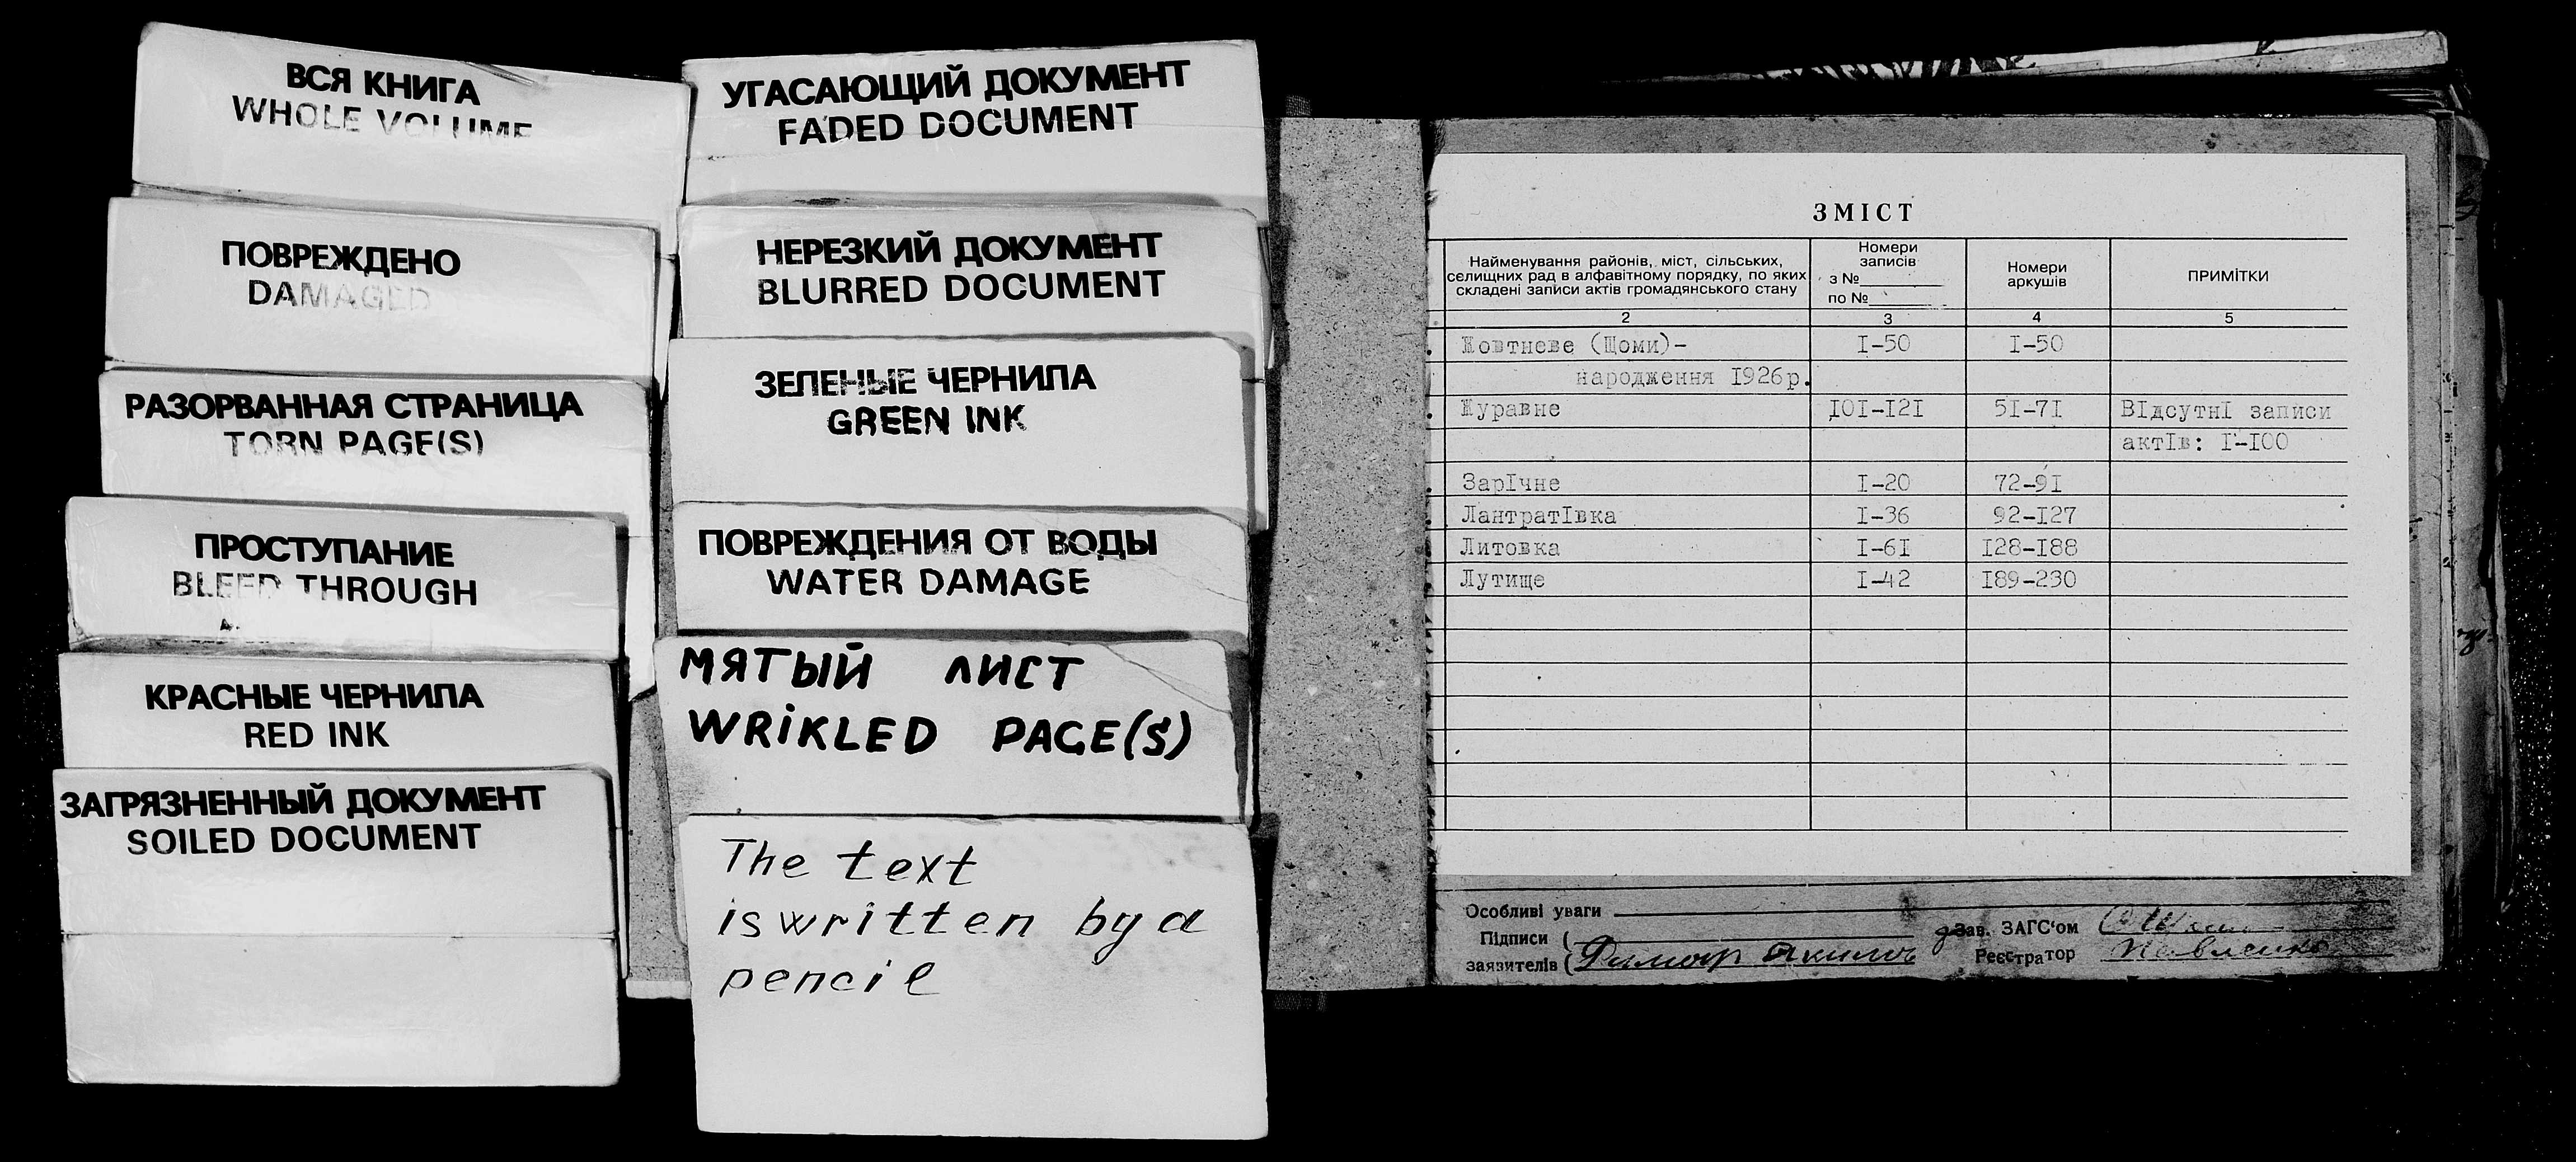 ВСЯ КНИГА
WHOLE VOLUME
ПОВРЕЖДЕНО
DAMAGED
РАЗОРВАННАЯ СТРАНИЦА
TORN PAGE(S)
ПРОСТУПАНИЕ
BLEED THROUGH
КРАСНЫЕ ЧЕРНИЛА
RED INK
ЗАГРЯЗНЕННЫЙ ДОКУМЕНТ
SOILED DOCUMENT
УГАСАЮЩИЙ ДОКУМЕНТ
FADED DOCUMENT
НЕРЕЗКИЙ ДОКУМЕНТ
BLURRED DOCUMENT
ЗЕЛЕНЫЕ ЧЕРНИЛА
GREEN INK
ПОВРЕЖДЕНИЯ ОТ ВОДЫ
WATER DAMAGE
МЯТЫЙ ЛИСТ
WRIKLED PAGE(S)
The text
is written by a
pencil
ЗМІСТ
Найменування районів, міст, сільських,
селищних рад в алфавітному порядку, по яких
складені записи актів громадянського стану
Номери
записів
з №
по №
Номери
аркушів
ПРИМІТКИ
2 3 4 5
Жовтневе (Щоми)- I-50 I-50
народження I926р.
Журавне IOI-I2I 5I-7I ВIдсутнI записи
актIв: I-IOO
ЗарIчне I-20 72-9I
ЛантратIвка I-36 92-I27
Литовка I-6I I28-I88
Лутище I-42 I89-230
Особливі уваги
Підписи
заявителів
Зав. ЗАГС'ом
Реєстратор